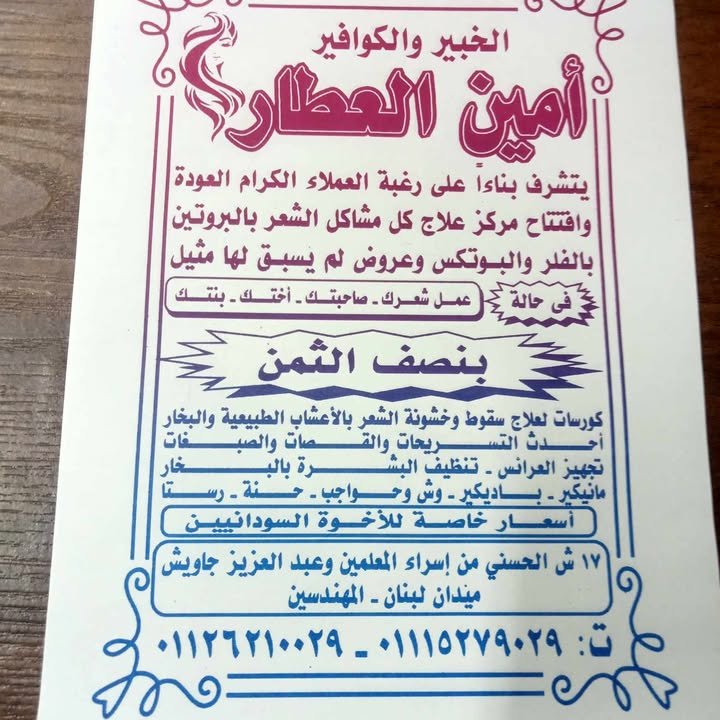 الخبير والكوافير
أمين العطار
يتشرف بناءاً على رغبة العملاء الكرام العودة
وافتتاح مركز علاج كل مشاكل الشعر بالبروتين
بالفلر والبوتكس وعروض لم يسبق لها مثيل
فى حالة عمل شعرك - صاحبتك - أختك - بنتك
بنصف الثمن
كورسات لعلاج سقوط وخشونة الشعر بالأعشاب الطبيعية والبخار
أحدث التسريحات والقصات والصبغات
تجهيز العرائس - تنظيف البشرة بالبخار
مانيكير - باديكير - وش وحواجب - حنة - رستا
أسعار خاصة للأخوة السودانيين
١٧ ش الحسني من إسراء المعلمين وعبد العزيز جاويش
ميدان لبنان - المهندسين
ت: ٠١١١٥٢٧٩٠٢٩ - ٠١١٢٦٢١٠٠٢٩